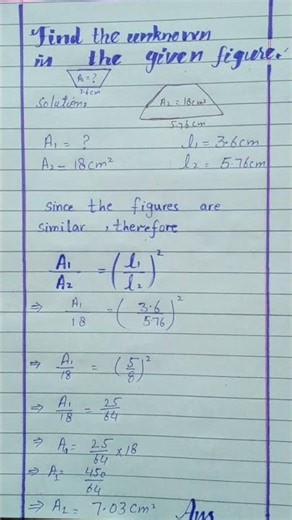 Find the unknown
in the given figure.
A₁ = ?
3.6cm
Solution,
A₂ = 18cm²
5.76cm
A₁ = ? l₁ = 3.6cm
A₂ = 18cm² l₂ = 5.76cm
Since the figures are
similar, therefore
A₁/A₂ = (l₁/l₂)²
⇒ A₁/18 = (3.6/576)²
⇒ A₁/18 = (5/8)²
⇒ A₁/18 = 25/64
⇒ A₁ = 25/64 × 18
⇒ A₁ = 450/64
⇒ A₁ = 7.03cm² Ans